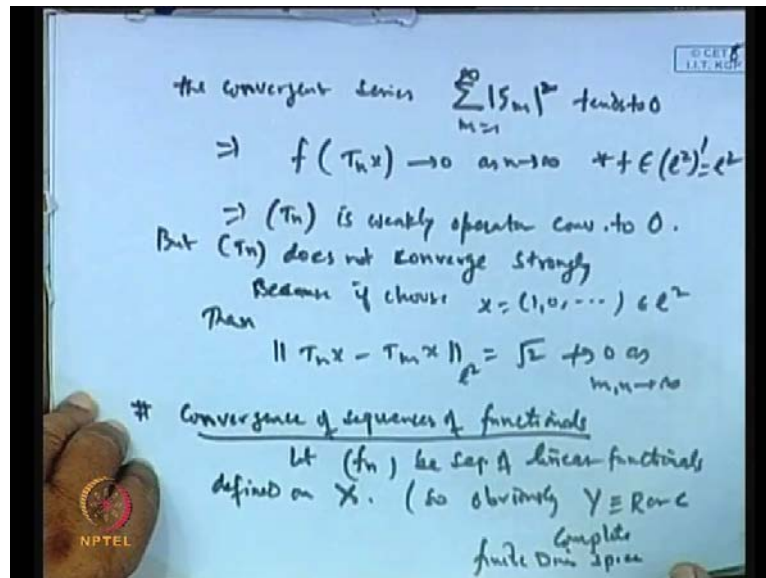 © CET
I.I.T. KGP
the convergent series ∑_{m=1}^{∞} |ξ_m|² tends to 0
⇒ f(T_n x) → 0 as n→∞ ∀ f ∈ (ℓ²)' = ℓ²
⇒ (T_n) is weakly operator conv. to 0.
But (T_n) does not converge strongly
Because if choose x = (1, 0, ---) ∈ ℓ²
Then
|| T_n x - T_m x ||_{ℓ²} = √2 ↛ 0 as
m, n → ∞
# Convergence of sequences of functionals
Let (f_n) be seq of linear functionals
defined on X. (so obviously Y ≡ R or C
Complete
finite Dim space
NPTEL